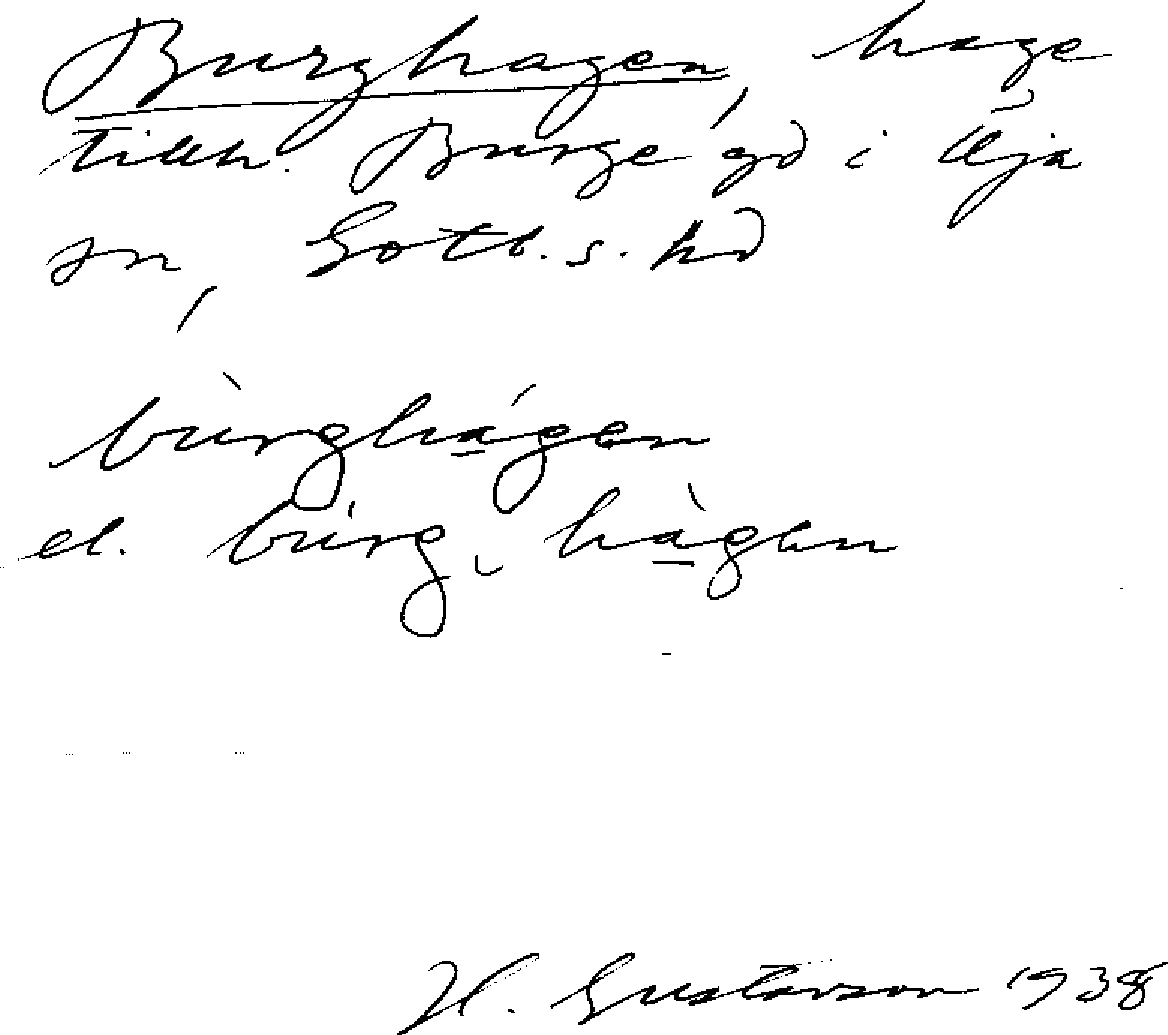 Burghagen, hage
tillh. Burge gd i Öja
sn, Gotl. s. hd
bùrghágen
el. búrg, hàgen
H. Gustavson 1938